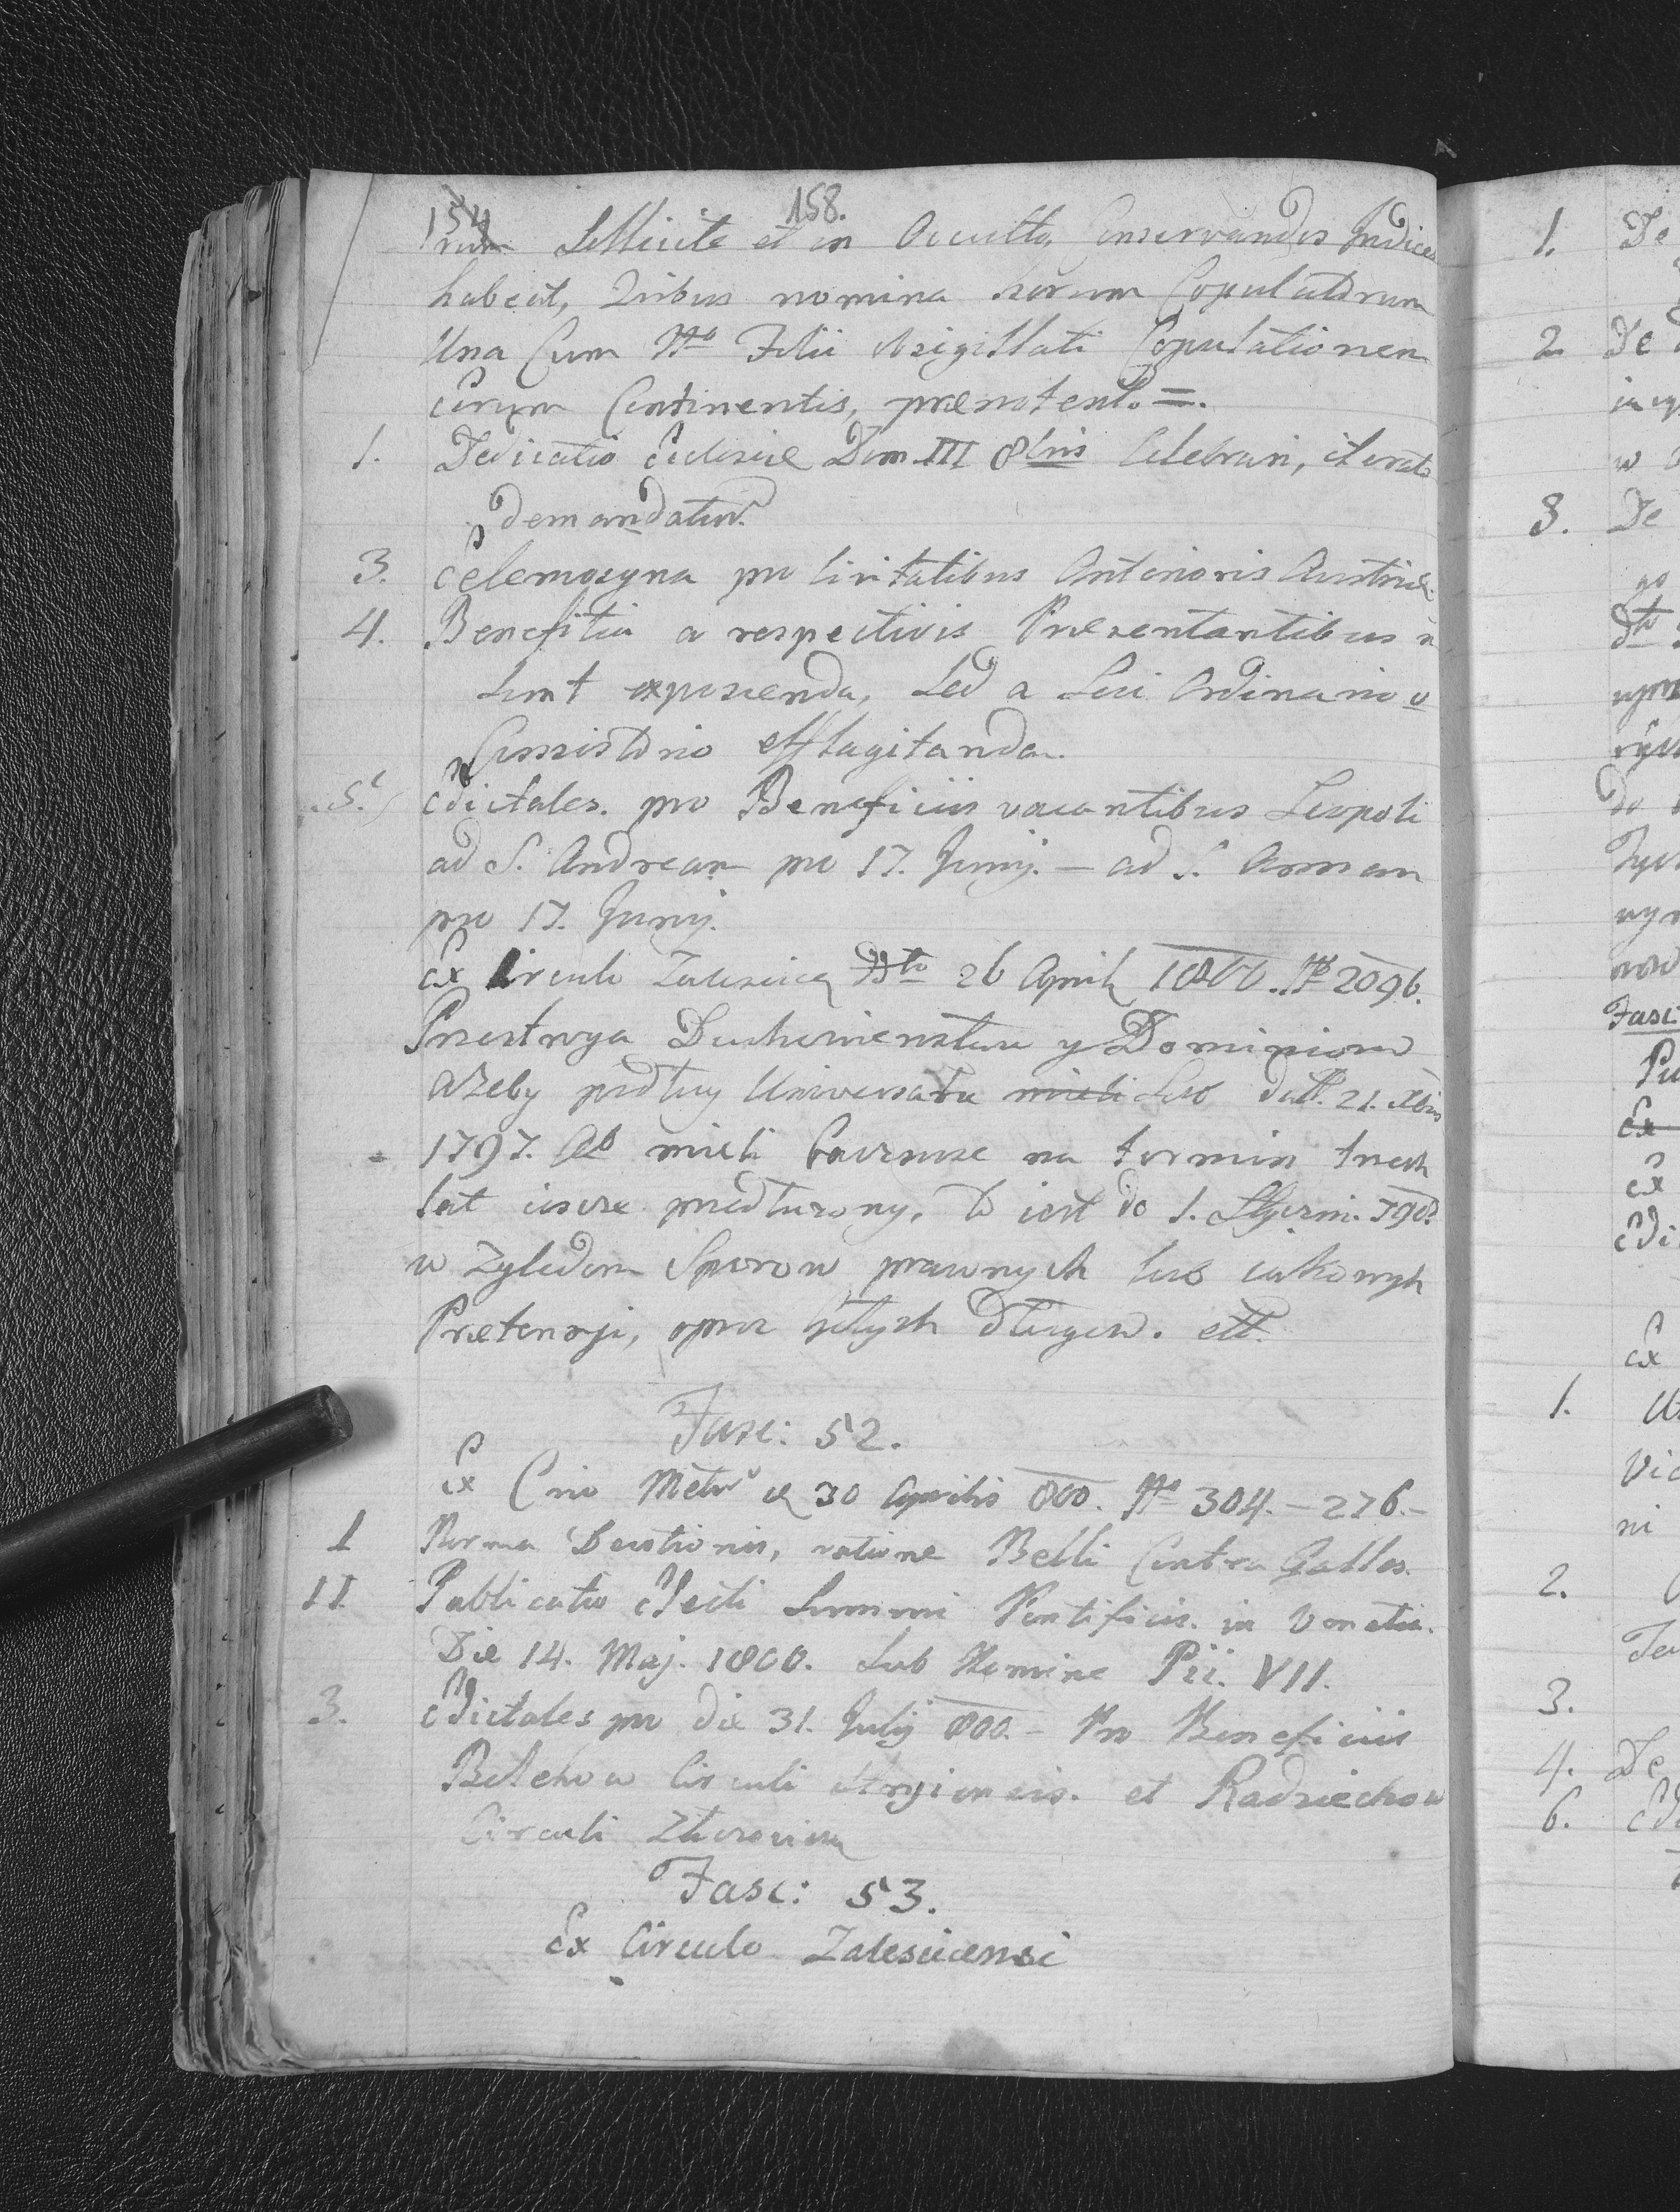 154 158.
rum Sollicite et in Occulto Conservandos Indices
habeat, Quibus nomina horum Copulatorum
Una Cum Nro Folii Asigillati Copulationem
eorum Continentis, praenotent. =.
1. Dedicatio Ecclesiae Dom III 8bris Celebrari, iterato
demandatur.
3. Eelemosyna pro Civitatibus Anterioris Austriae.
4. Benefitia a respectivis Praesentantibus n
sunt exposcenda, Sed a Loci Ordinario v
Consistorio efflagitanda.
5. Edictales. pro Beneficiis vacantibus Leopoli
ad S. Andream pro 17. Junij. – ad S. Annam
pro 17. Junij.
Ex Circulo Zalescicen Dto 26 April 1800. Nro 2096.
Przestroga Duchowienstwu y Dominiom
ażeby podług Uniwersału mieli Sub dat. 21. Xbris
1797. Ab mieli baczenie na termin trzech
lat iescze przedłużony, to iest do 1. Styczni.
w Zględem Sporow prawnych lub iakowych
Pretensji, oprocz długow. ett.
Fasc: 52.
Ex Crio Metro d 30 Aprilis 800. Nro 304. – 276. –
1 Norma Devotionis, ratione Belli Contra Gallos.
II Publicatio Electi Summi Pontificis. in Venetia.
Die 14. Maj. 1800. Sub Nomine Pii. VII.
3. Edictales pro die 31. Julij 800. – Pro Beneficiis
Bolechow Circuli Stryiensis. et Radziechow
Circuli Złoczovien
Fasc: 53.
Ex Circulo Zalescicensi
1. De
2. De
in
w
3. De
go
dto
do
Fasc
Ex
Ex
Edi
Ex
1.
Vic
ni
2.
3.
4. De
6. Ed